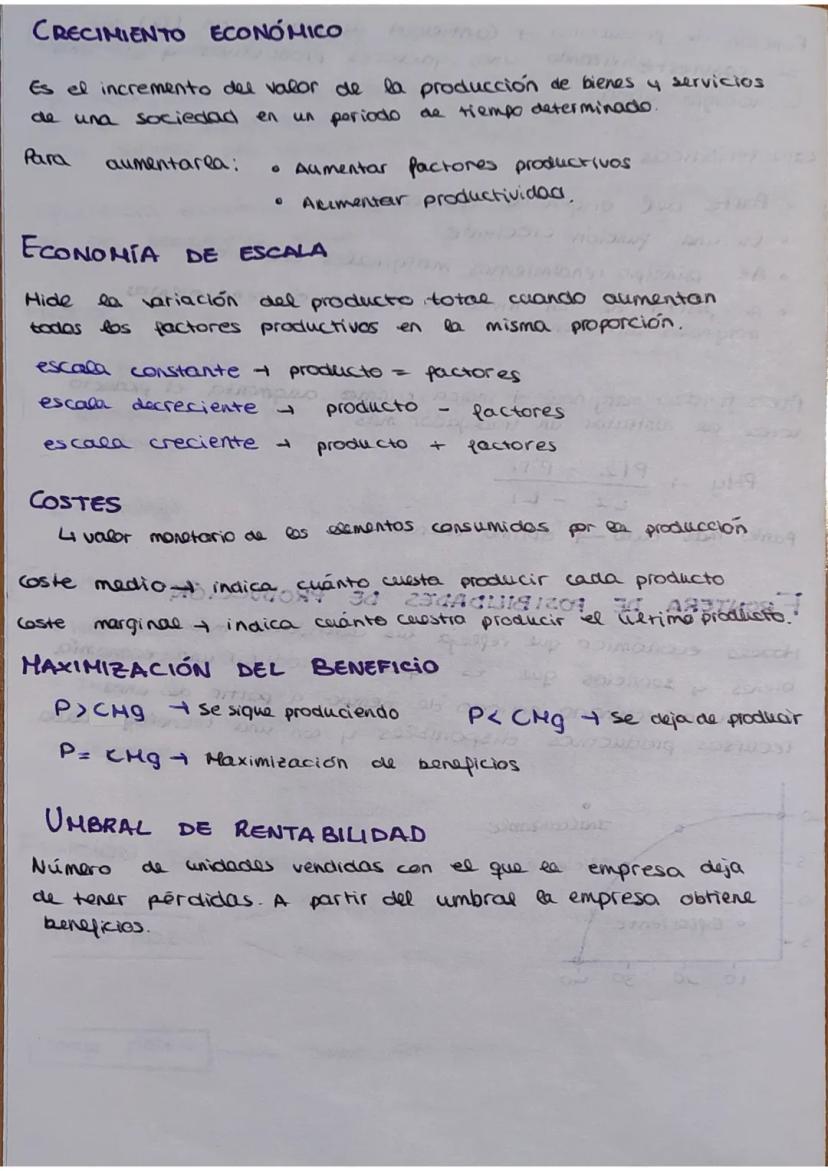 CRECIMIENTO ECONÓMICO
Es el incremento del valor de la producción de bienes y servicios
de una sociedad en un periodo de tiempo determinado.
Para aumentarla: • Aumentar factores productivos
• Aumentar productividad.
ECONOMÍA DE ESCALA
Mide la variación del producto total cuando aumentan
todos los factores productivos en la misma proporción.
escala constante → producto = factores
escala decreciente → producto - factores
escala creciente → producto + factores
COSTES
↳ valor monetario de los elementos consumidos por la producción
Coste medio → indica cuánto cuesta producir cada producto
Coste marginal → indica cuánto cuestra producir el último producto.
MAXIMIZACIÓN DEL BENEFICIO
P > CMg → se sigue produciendo P < CMg → se deja de producir
P = CMg → Maximización de beneficios
UMBRAL DE RENTABILIDAD
Número de unidades vendidas con el que la empresa deja
de tener pérdidas. A partir del umbral la empresa obtiene
beneficios.